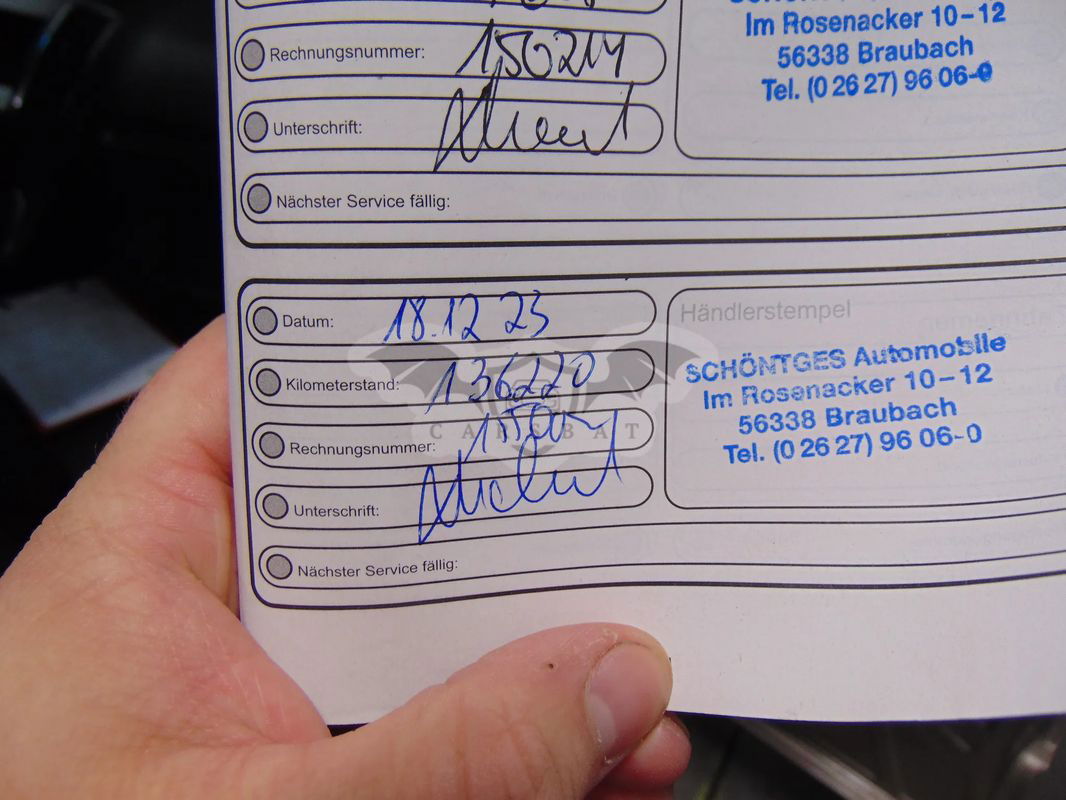 Im Rosenacker 10-12
56338 Braubach
Tel. (0 26 27) 96 06-0
Rechnungsnummer: 150214
Unterschrift:
Nächster Service fällig:
Datum: 18.12 23
Kilometerstand: 136220
Rechnungsnummer:
Unterschrift:
Nächster Service fällig:
Händlerstempel
SCHÖNTGES Automobile
Im Rosenacker 10-12
56338 Braubach
Tel. (0 26 27) 96 06-0
CARSBAT